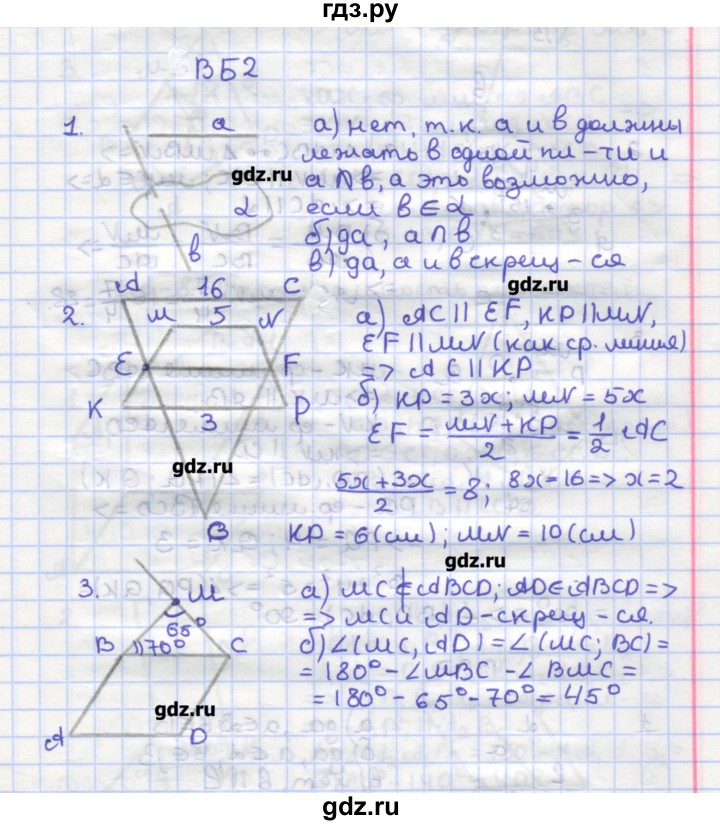 гдз.ру
ВБ2
1. a а) нет, т.к. а и в должны
лежать в одной пл-ти и
gdz.ru а∩в, а это возможно,
α если в∈α
б) да, а∩в
в в) да, а и в скрещ-ся
gdz.ru
A 16 C
2. M 5 N а) AC || EF, KP || MN,
E F EF || MN (как ср. линия)
=> AC || KP
K P б) KP = 3x; MN = 5x
3 EF = (MN+KP)/2 = 1/2 AC
gdz.ru
(5x+3x)/2 = 8; 8x=16 => x=2
B KP = 6(см); MN = 10(см)
gdz.ru
3. M а) MC ∉ ABCD; AD ∈ ABCD =>
65° => MC и AD - скрещ-ся.
B 70° C б) ∠(MC, AD) = ∠(MC; BC) =
= 180° - ∠MBC - ∠BMC =
gdz.ru = 180° - 65° - 70° = 45°
A D
gdz.ru